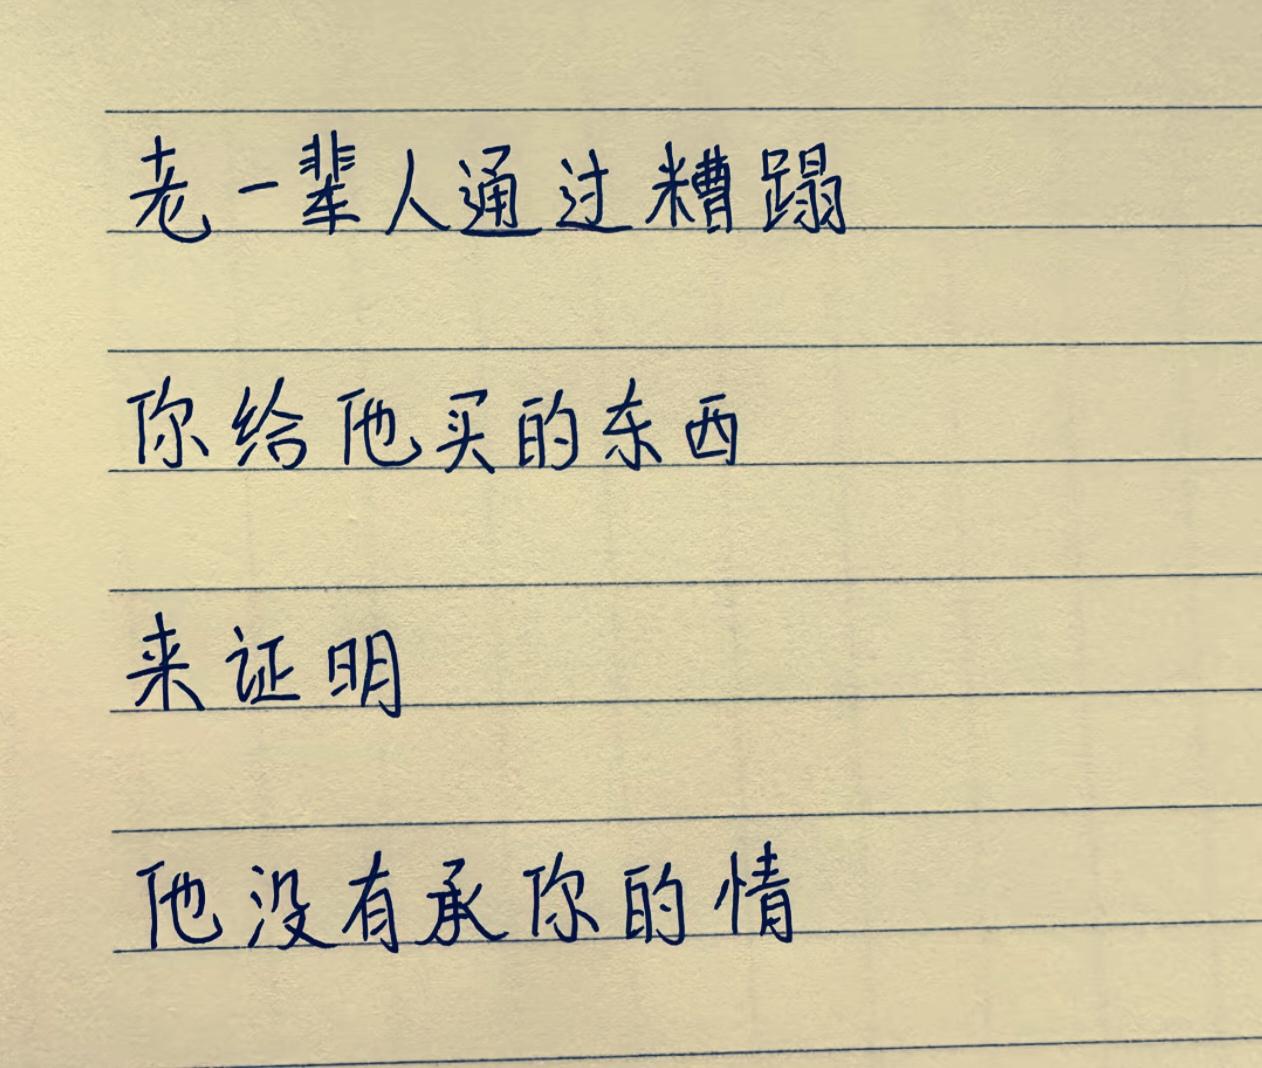 老一辈人通过糟蹋
你给他买的东西
来证明
他没有承你的情